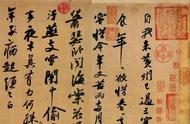 自我來黃州已過三寒
食年〻欲惜春〻去不
容惜今年又苦雨兩月秋
蕭瑟卧聞海棠花泥
汙燕支雪闇中偷
負去夜半真有力何殊
年子病起頭已白